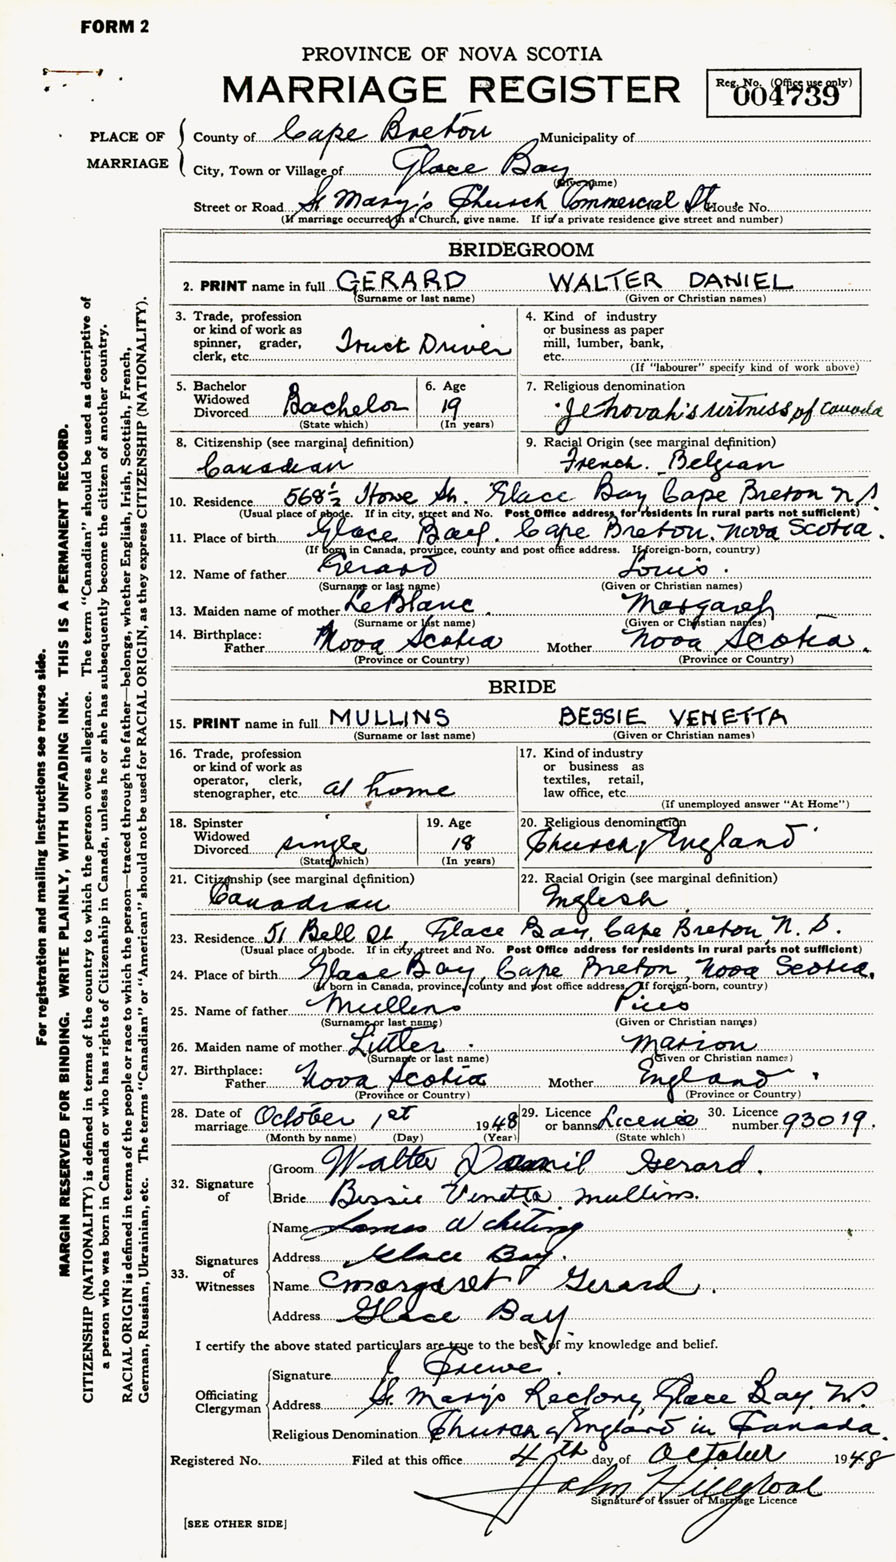 FORM 2
PROVINCE OF NOVA SCOTIA
MARRIAGE REGISTER
Reg. No. (Office use only)
004739
PLACE OF MARRIAGE
County of Cape Breton Municipality of
City, Town or Village of Glace Bay
(Give name)
Street or Road St Mary's Church Commercial St House No.
(If marriage occurred in a Church, give name. If in a private residence give street and number)
BRIDEGROOM
2. PRINT name in full GERARD WALTER DANIEL
(Surname or last name) (Given or Christian names)
3. Trade, profession or kind of work as spinner, grader, clerk, etc. Truck Driver
4. Kind of industry or business as paper mill, lumber, bank, etc.
(If "labourer" specify kind of work above)
5. Bachelor Widowed Divorced Bachelor
(State which)
6. Age 19
(In years)
7. Religious denomination
Jehovah's witness of Canada
8. Citizenship (see marginal definition)
Canadian
9. Racial Origin (see marginal definition)
French. Belgian
10. Residence 568½ Howe St. Glace Bay Cape Breton N S
(Usual place of abode. If in city, street and No. Post Office address for residents in rural parts not sufficient)
11. Place of birth Glace Bay. Cape Breton. Nova Scotia.
(If born in Canada, province, county and post office address. If foreign-born, country)
12. Name of father Gerard Louis.
(Surname or last name) (Given or Christian names)
13. Maiden name of mother LeBlanc Margaret
(Surname or last name) (Given or Christian names)
14. Birthplace:
Father Nova Scotia Mother Nova Scotia.
(Province or Country) (Province or Country)
BRIDE
15. PRINT name in full MULLINS BESSIE VENETTA
(Surname or last name) (Given or Christian names)
16. Trade, profession or kind of work as operator, clerk, stenographer, etc. at home
17. Kind of industry or business as textiles, retail, law office, etc.
(If unemployed answer "At Home")
18. Spinster Widowed Divorced single
(State which)
19. Age 18
(In years)
20. Religious denomination
Church of England
21. Citizenship (see marginal definition)
Canadian
22. Racial Origin (see marginal definition)
English
23. Residence 51 Bell St, Glace Bay, Cape Breton, N. S.
(Usual place of abode. If in city, street and No. Post Office address for residents in rural parts not sufficient)
24. Place of birth Glace Bay, Cape Breton, Nova Scotia.
(If born in Canada, province, county and post office address. If foreign-born, country)
25. Name of father Mullins Pius
(Surname or last name) (Given or Christian names)
26. Maiden name of mother Marion
(Surname or last name) (Given or Christian names)
27. Birthplace:
Father Nova Scotia Mother England
(Province or Country) (Province or Country)
28. Date of marriage October 1st 1948
(Month by name) (Day) (Year)
29. Licence or banns License
(State which)
30. Licence number 93019.
32. Signature of
Groom Walter Daniel Gerard.
Bride Bessie Venetta Mullins.
33. Signatures of Witnesses
Name
Address Glace Bay.
Name Margaret Gerard.
Address Glace Bay
I certify the above stated particulars are true to the best of my knowledge and belief.
Officiating Clergyman
Signature
Address St. Mary's Rectory, Glace Bay N.S.
Religious Denomination Church of England in Canada.
Registered No. Filed at this office 4th day of October 1948
John
Signature of Issuer of Marriage Licence
[SEE OTHER SIDE]
For registration and mailing instructions see reverse side.
MARGIN RESERVED FOR BINDING. WRITE PLAINLY, WITH UNFADING INK. THIS IS A PERMANENT RECORD.
CITIZENSHIP (NATIONALITY) is defined in terms of the country to which the person owes allegiance. The term "Canadian" should be used as descriptive of
a person who was born in Canada or who has rights of Citizenship in Canada, unless he or she has subsequently become the citizen of another country.
RACIAL ORIGIN is defined in terms of the people or race to which the person—traced through the father—belongs, whether English, Irish, Scottish, French,
German, Russian, Ukrainian, etc. The terms "Canadian" or "American" should not be used for RACIAL ORIGIN, as they express CITIZENSHIP (NATIONALITY).